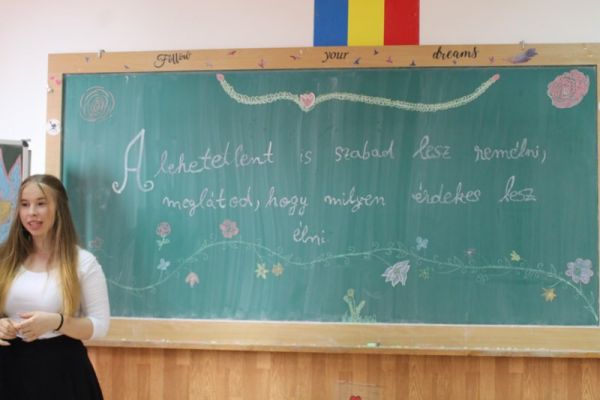 Follow your dreams
A lehetetlent is szabad lesz remélni,
meglátod, hogy milyen érdekes lesz
élni